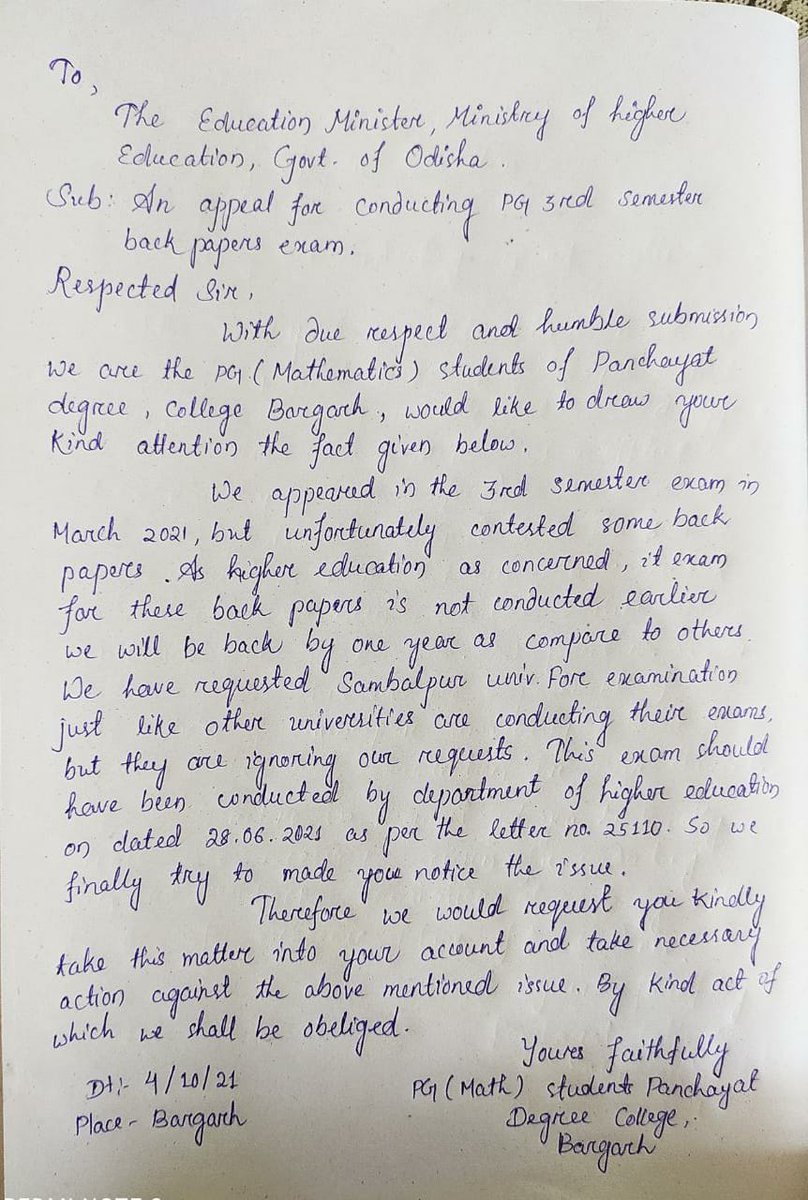 To,
The Education Minister, Ministry of higher
Education, Govt. of Odisha.
Sub: An appeal for conducting PG 3rd semester
back papers exam.
Respected Sir,
With due respect and humble submission
we are the PG (Mathematics) students of Panchayat
degree, College Bargarh, would like to draw your
kind attention the fact given below.
We appeared in the 3rd semester exam in
March 2021, but unfortunately contested some back
papers. As higher education as concerned, it exam
for these back papers is not conducted earlier
we will be back by one year as compare to others.
We have requested Sambalpur univ. Fore examination
just like other universities are conducting their exams,
but they are ignoring our requests. This exam should
have been conducted by department of higher education
on dated 28.06.2021 as per the letter no. 25110. So we
finally try to made you notice the issue.
Therefore we would request you kindly
take this matter into your account and take necessary
action against the above mentioned issue. By kind act of
which we shall be obeliged.
Yours faithfully
Dt:- 4/10/21
PG (Math) students Panchayat
Place - Bargarh
Degree College,
Bargarh